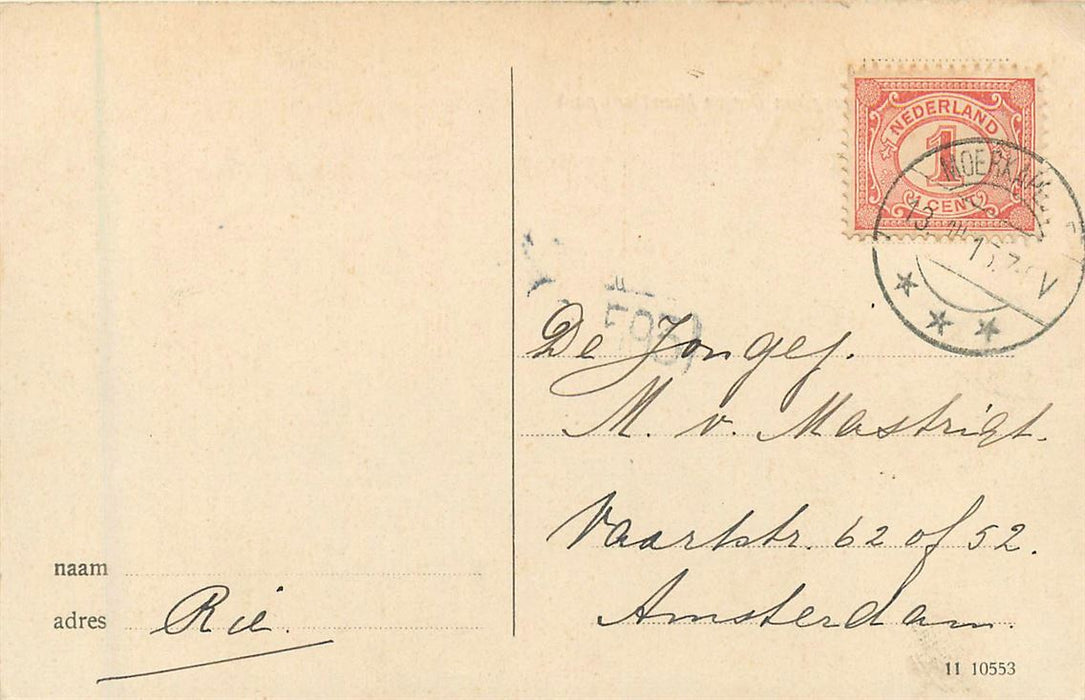 NEDERLAND
1
CENT
MOERKAPELLE
De Jongej.
M. v. Mastrigt.
Vaartstr. 62 of 52.
Amsterdam.
naam
adres Rie.
11 10553